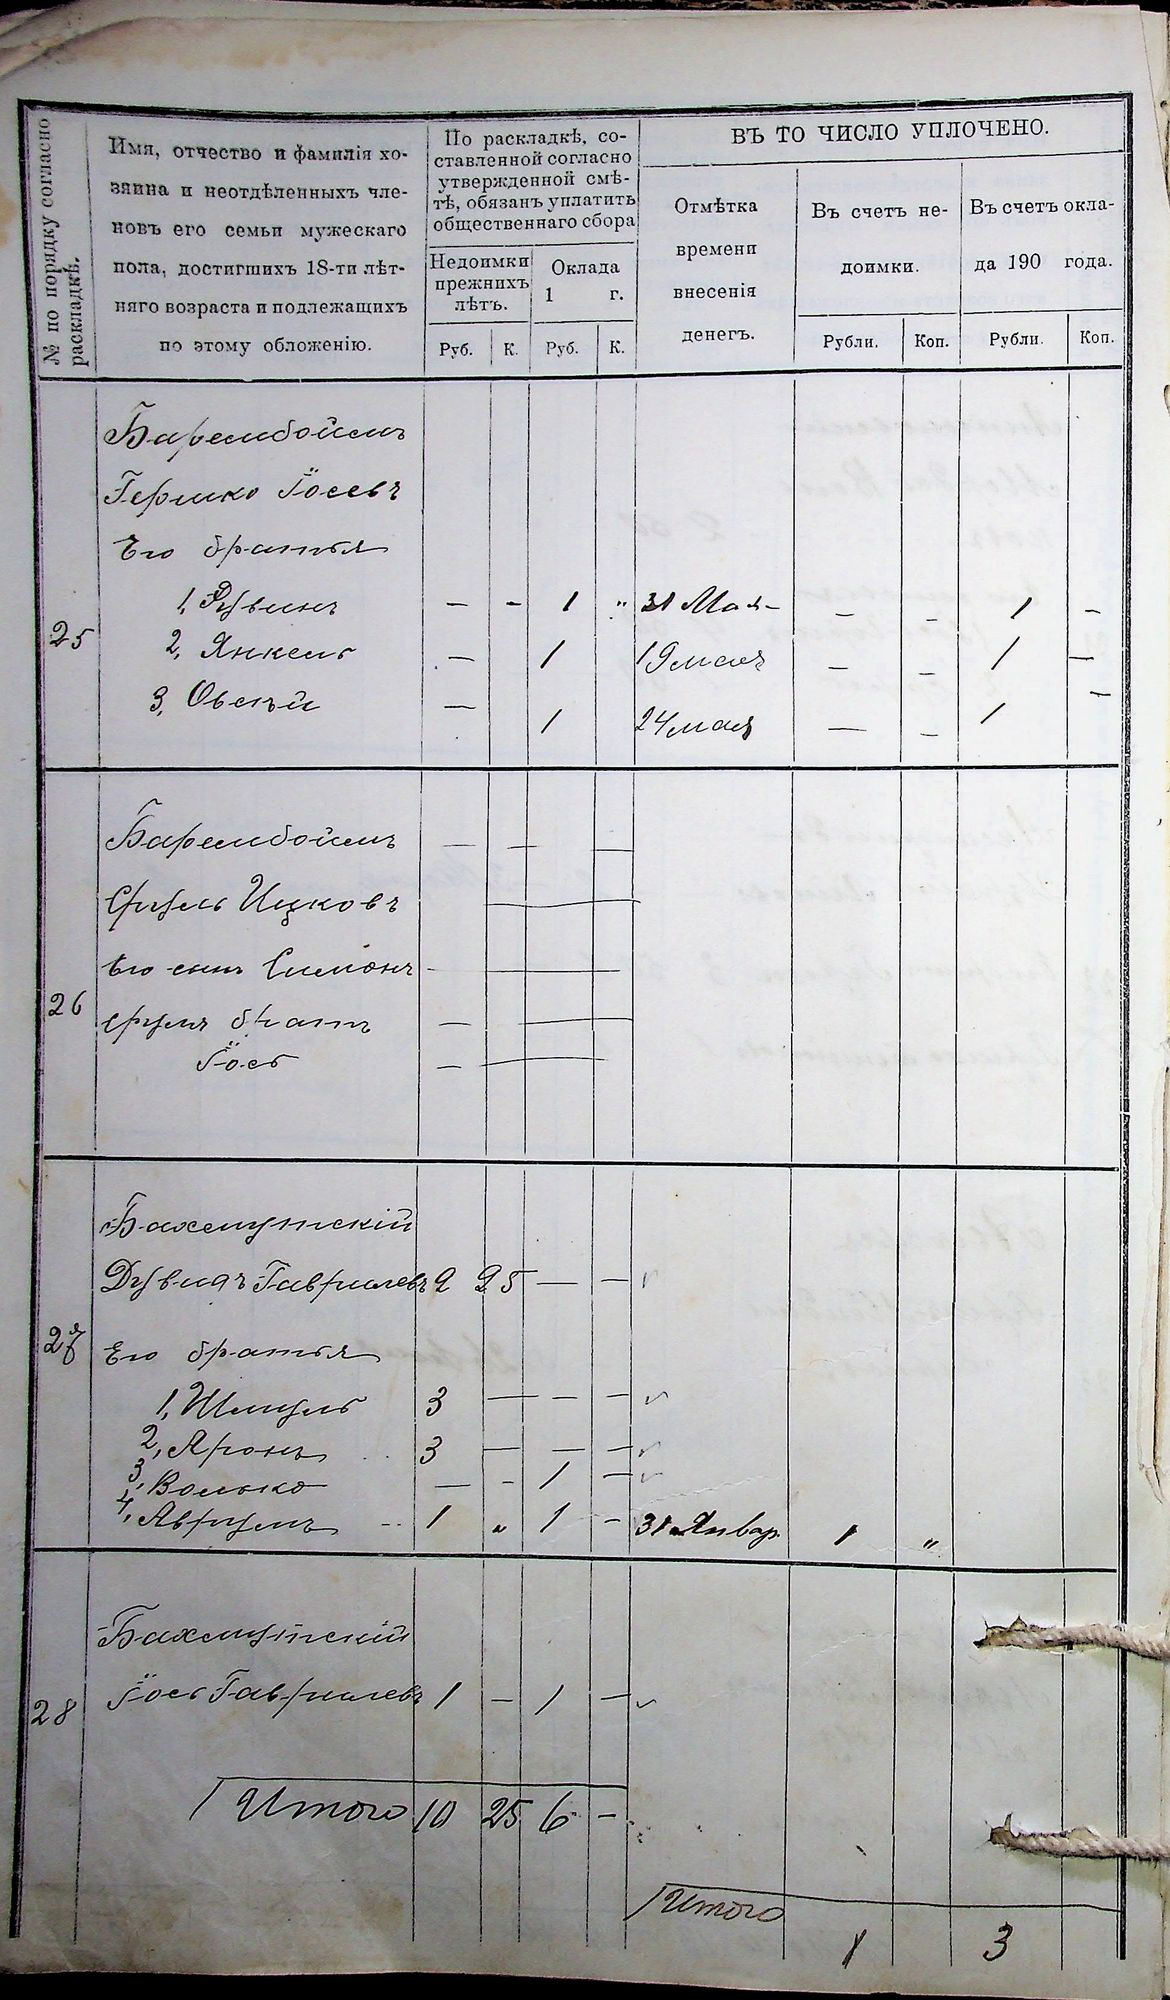 № по порядку согласно раскладкѣ.
Имя, отчество и фамилія хо-
зяина и неотдѣленныхъ чле-
новъ его семьи мужескаго
пола, достигшихъ 18-ти лѣт-
няго возраста и подлежащихъ
по этому обложенію.
По раскладкѣ, со-
ставленной согласно
утвержденной смѣ-
тѣ, обязанъ уплатить
общественнаго сбора
Недоимки
прежнихъ
лѣтъ.
Оклада
1 г.
Руб. К. Руб. К.
ВЪ ТО ЧИСЛО УПЛОЧЕНО.
Отмѣтка
времени
внесенія
денегъ.
Въ счетъ не-
доимки.
Въ счетъ окла-
да 190 года.
Рубли. Коп. Рубли. Коп.
25
Барембоймъ
Гершко Іосевъ
Его братья
1, Рувинъ — - 1 " 31 Мая - — - 1 -
2, Янкель — 1 19 мая — - 1 —
3, Овсѣй — 1 24 мая — - 1 —
26
Барембоймъ — — —
Сруль Ицковъ —
Его сынъ Симонъ - —
Сруля братъ — —
Іось — —
27
Бахмутскій
Дувидъ Гавриловъ 2 25 — —
Его братья
1, Шмуль 3 — — —
2, Аронъ 3 — — —
3, Волько — - 1 —
4, Аврумъ 1 " 1 - 31 Январ. 1 "
28
Бахмутскій
Іось Гавриловъ 1 — 1 —
Итого 10 25 6 —
Итого
1 3